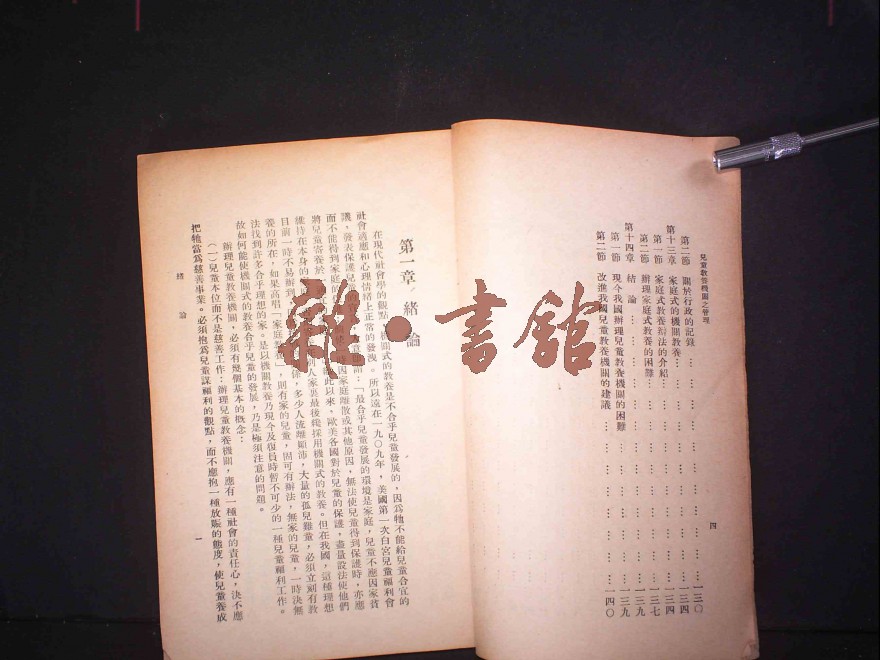 兒童教養機關之管理
四
第二節 關於行政的記錄……一三〇
第十三章 家庭式的機關教養……一三四
第一節 家庭式教養辦法的介紹……一三四
第二節 辦理家庭式教養的困難……一三七
第十四章 結論……一三九
第一節 現今我國辦理兒童教養機關的困難……一三九
第二節 改進我國兒童教養機關的建議……一四〇
第一章 緒論
在現代社會學的觀點，機關式的教養是不合乎兒童發展的，因爲牠不能給兒童合宜的
社會適應和心理情緒上正常的發洩。所以遠在一九〇九年，美國第一次白宮兒童福利會
議，發表保護兒童的：「最合乎兒童發展的環境是家庭，兒童不應因家貧
而不能得到家庭的因家庭離散或其他原因，無法使兒童得到保護時，亦應
將兒童寄養於別人家裏最後纔採用機關式的教養。但在我國，這種理想
維持在本身的此以來，歐美各國對於兒童的保護，盡量設法使他們
目前一時不易辦到係，多少人流離顛沛，大量的孤兒難童，必須立刻有教
養的所在，如果高唱「家庭教養」，則有家的兒童，固可有辦法，無家的兒童，一時決無
法找到許多合乎理想的家。是以機關教養乃現今及復員時暫不可少的一種兒童福利工作。
故如何能使機關式的教養合乎兒童的發展，乃是極須注意的問題。
辦理兒童教養機關，必須有幾個基本的概念：
（一）兒童本位而不是慈善工作：辦理兒童教養機關，應有一種社會的責任心，決不應
把牠當爲慈善事業。必須抱爲兒童謀福利的觀點，而不應抱一種放賑的態度，使兒童養成
緒論
一
雜·書館